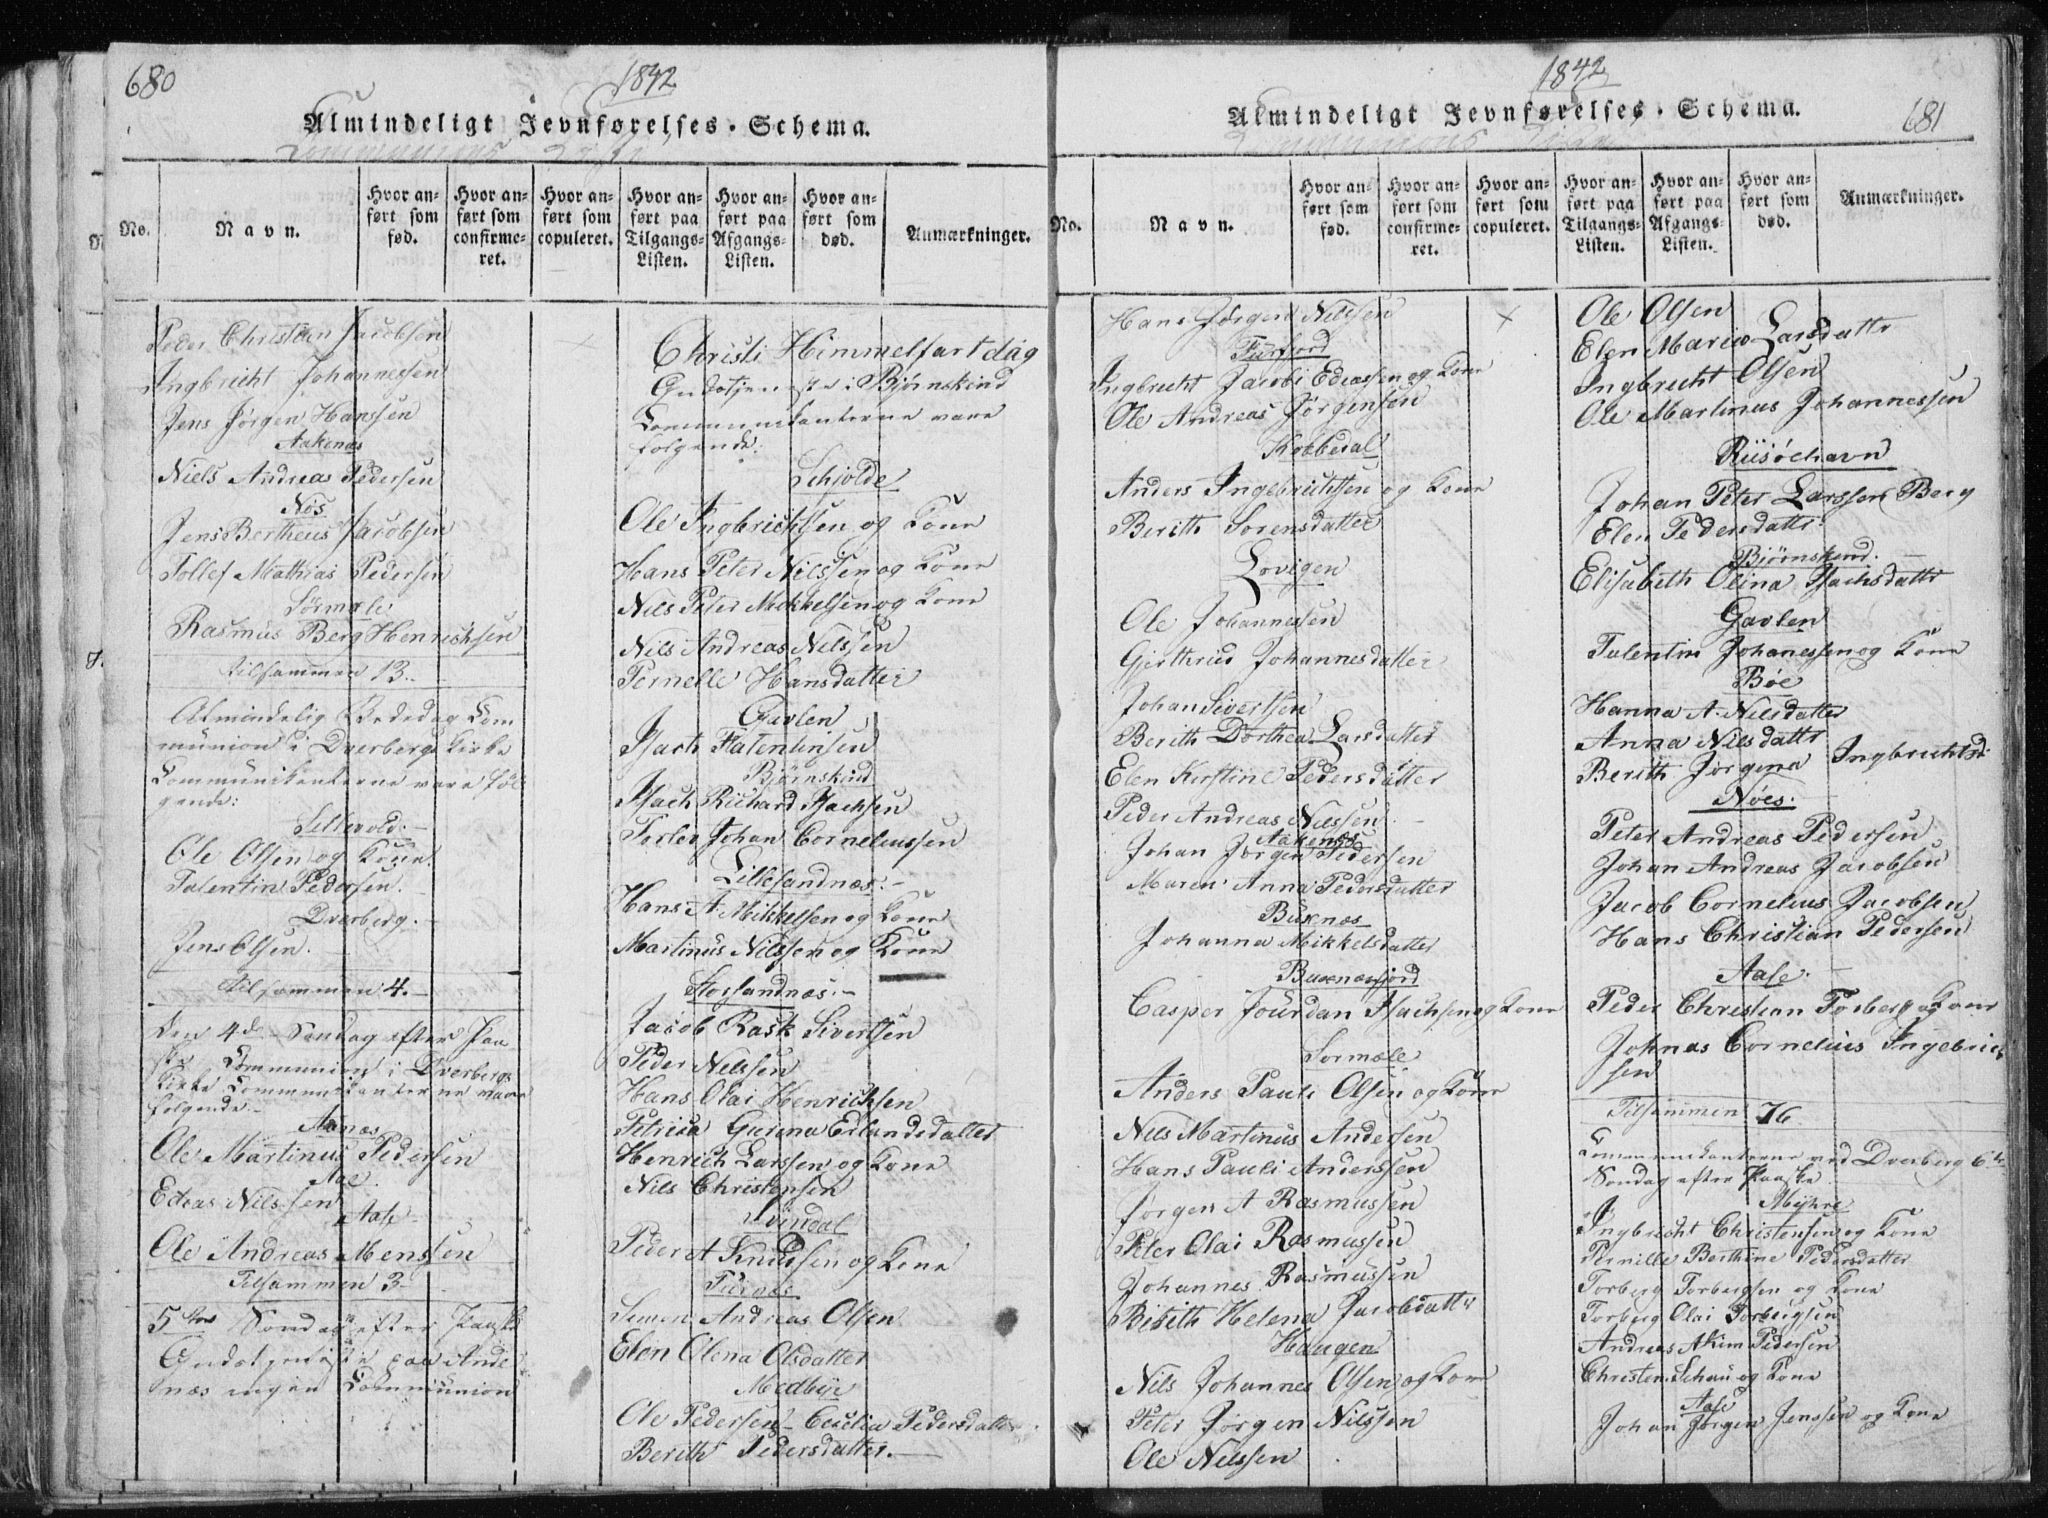 680
1842
Almindeligt Jevnførelses-Schema.
Communions Liste
No.
Navn.
Hvor anført som fød.
Hvor anført som confirmeret.
Hvor anført som copuleret.
Hvor anført paa Tilgangs-Listen.
Hvor anført paa Afgangs-Listen.
Hvor anført som død.
Anmærkninger.
Peder Christian Jacobsen
Ingbricht Johannessen
Jens Jørgen Hanssen
Aakenæs
Niels Andreas Pedersen
Nøs
Jens Bertheus Jacobsen
Tollef Mathias Pedersen
Sørmæle
Rasmus Berg Henrichsen
tilsammen 13.
Almindelig Bededag Com
munion i Dverbergs Kirke
Communikanterne vare föl
gende:
Sellevold.
Ole Olsen og Kone
Talentin Pedersen.
Dverberg.
Jens Olsen.
tilsammen 4.
Den 4de Søndag efter Paa
ske Communion i Dverbergs
Kirke Communikanterne vare
følgende
Aanæs
Ole Martinus Pedersen
Aae.
Edeas Nilssen
Aase
Ole Andreas Monssen
Tilsammen 3
5te Søndag efter Paaske
Gudstjeneste paa Ande
næs ingen Communion
Christi Himmelfart dag
Gudstjeneste i Bjørnskind
Communikanterne vare
følgende:
Schjolde
Ole Ingbrichtsen og Kone
Hans Peter Nilssen og Kone
Nils Peter Mikkelsen og Kone
Nils Andreas Nilssen
Pernelle Hansdatter
Gavlen
Isach Falentinsen
Bjørnskind
Isach Richard Isachsen
Torlev Johan Corneliussen
Lillesandnæs
Hans A Mikkelsen og Kone
Martinus Nilssen og Kone
Storsandnæs
Jacob Rask Sivertsen
Peder Nilssen
Hans Olai Henrichsen
Petrica Gurina Erlandsdatter
Henrich Larssen og Kone
Nils Christensen
Svindal
Peder A Knudsen og Kone
Turnæs
Simon Andreas Olsen
Elen Olena Olsdatter
Medbye
Ole Pedersen Cecelia Pedersdatter
Berith Pedersdatter.
1842
Almindeligt Jevnførelses-Schema.
681
Communions Liste
No.
Navn.
Hvor anført som fød.
Hvor anført som confirmeret.
Hvor anført som copuleret.
Hvor anført paa Tilgangs-Listen.
Hvor anført paa Afgangs-Listen.
Hvor anført som død.
Anmærkninger.
Hans Jørgen Nilssen
Fürfjord
Ingbrecht Jacobi Edeassen og Kone
Ole Andreas Jørgensen
Kobbedal
Anders Ingebrichtsen og Kone
Berith Sørensdatter
Lovigen
Ole Johannessen
Gjerthrud Johannesdatter
Johan Sivertsen
Berith Dorthea Larsdatter
Elen Kirstine Pedersdatter
Peder Andreas Nilssen
Aakenæs
Johan Jørgen Pedersen
Maren Anna Pedersdatter
Buxnæs
Johanna Mikkelsdatter
Buxnæsfjord
Casper Jourdan Isachsen og Kone
Sormæle
Anders Pauli Olsen og Kone
Nils Martinus Andersen
Hans Pauli Anderssen
Jørgen A Rasmussen
Peter Olai Rasmussen
Johannes Rasmussen
Birith Helena Jacobsdatter
Haugen
Nils Johannes Olsen og Kone
Peter Jørgen Nilssen
Ole Nilssen
Ole Olsen
Elen Maria Larsdattr
Ingbrecht Olsen
Ole Martinus Johannessen
Riisöehavn
Johan Peter Larssen Berg
Elen Pedersdattr
Bjørnskind.
Elisabeth Olina Isachsdattr
Gavlen
Talentin Johanessen og Kone
Bøe
Hanna A. Nilsdatter
Anna Nilsdattr
Berith Jørgena Ingbrichtsd
Nöes.
Peter Andreas Pedersen
Johan Andreas Jacobsen
Jacob Cornelius Jacobsen
Hans Christian Pedersen
Aase.
Peder Christian Torberg og Kone
Johnas Cornelius Ingebrich
sen
Tilsammen 76
Communikanterne ved Dverberg 6te
Søndag efter Paaske
Myhre
Ingbricht Christensen og Kone
Pernille Berthine Pedersdatter
Torberg Torbergsen og Kone
Torberg Olai Torbergsen
Andreas Akim Pedersen
Christen Schau og Kone
Aase
Johan Jørgen Jenssen og Kone